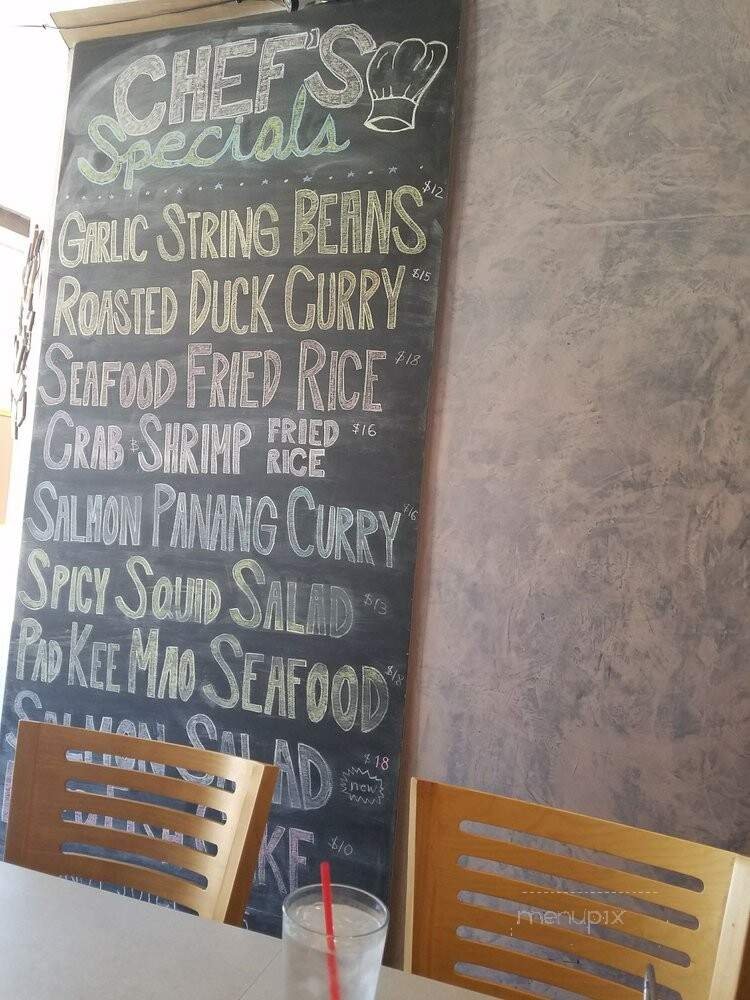 CHEF'S
Specials
GARLIC STRING BEANS $12
ROASTED DUCK CURRY $15
SEAFOOD FRIED RICE $18
CRAB & SHRIMP FRIED RICE $16
SALMON PANANG CURRY $16
SPICY SQUID SALAD $13
PAD KEE MAO SEAFOOD $18
SALMON SALAD $18
new
$10
menupix